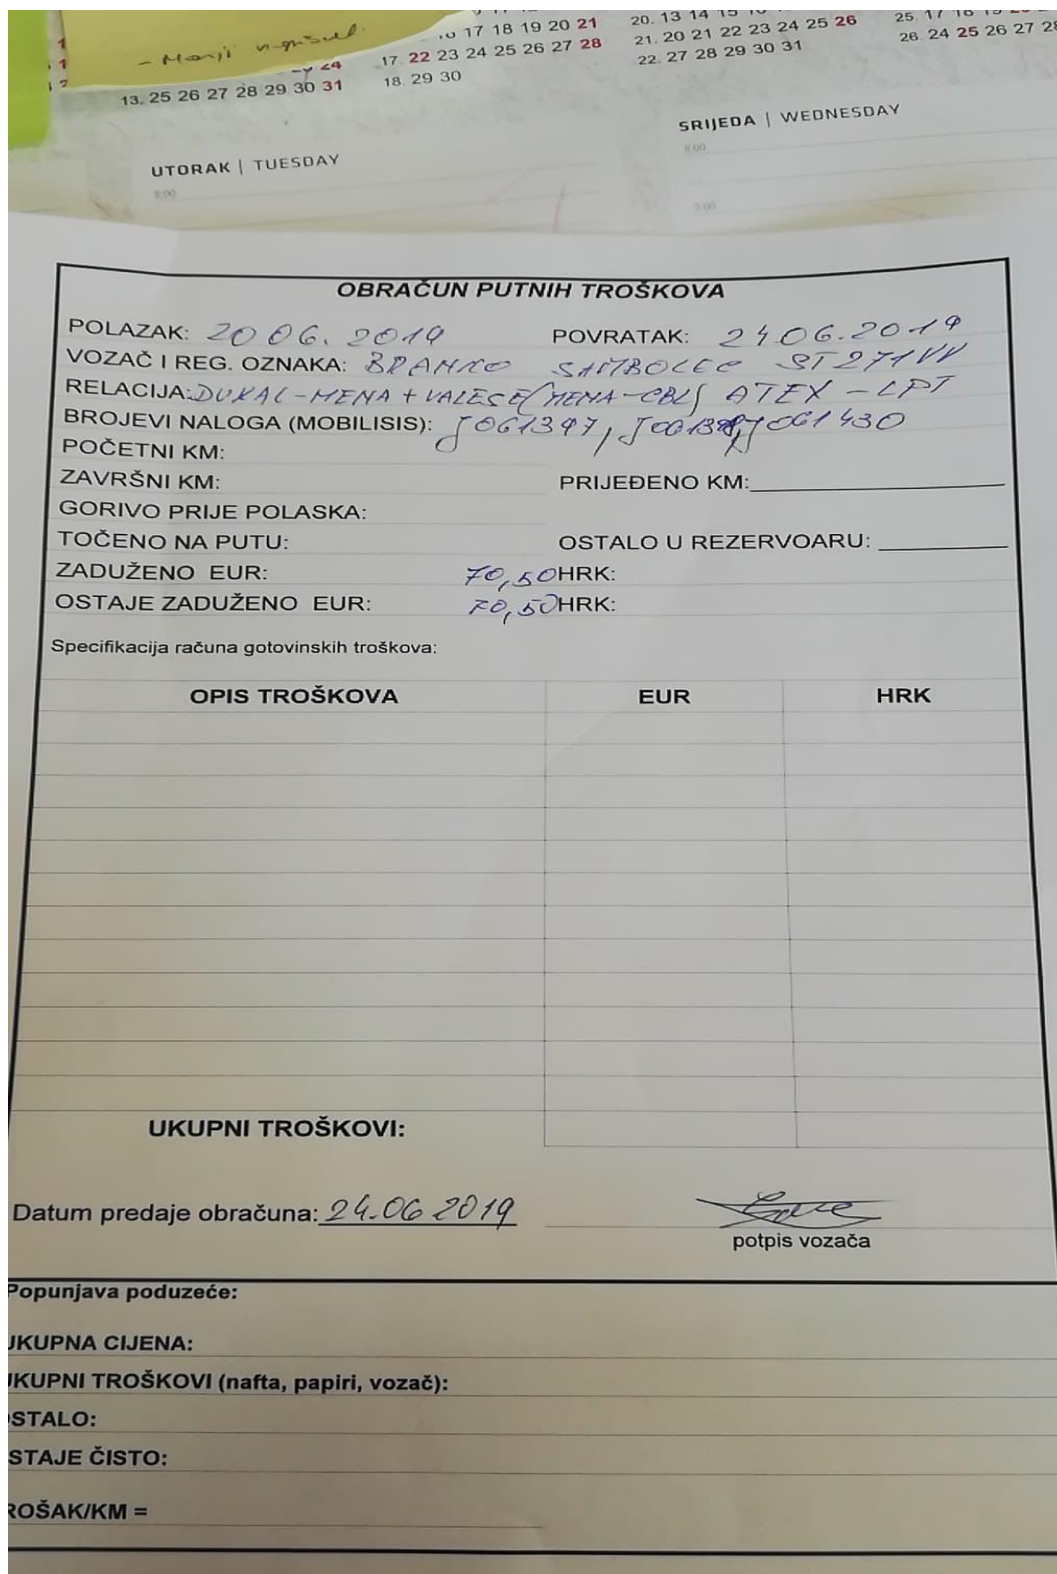 - Manji
17 18 19 20 21
20. 13 14 15
25. 17 18 19
24
17. 22 23 24 25 26 27 28
21. 20 21 22 23 24 25 26
26. 24 25 26 27 28
13. 25 26 27 28 29 30 31
18. 29 30
22. 27 28 29 30 31
UTORAK | TUESDAY
SRIJEDA | WEDNESDAY
8:00
8:00
9:00
OBRAČUN PUTNIH TROŠKOVA
POLAZAK: 20 06. 2019 POVRATAK: 24 06. 2019
VOZAČ I REG. OZNAKA: BRANKO SAMBOLEC ST 271 VV
RELACIJA: DUKAL-MENA + VALESE (MENA-CBL) ATEX - LPT
BROJEVI NALOGA (MOBILISIS): J061397, J061430
POČETNI KM:
ZAVRŠNI KM: PRIJEĐENO KM:
GORIVO PRIJE POLASKA:
TOČENO NA PUTU: OSTALO U REZERVOARU:
ZADUŽENO EUR: 70,50 HRK:
OSTAJE ZADUŽENO EUR: 70,50 HRK:
Specifikacija računa gotovinskih troškova:
OPIS TROŠKOVA EUR HRK
UKUPNI TROŠKOVI:
Datum predaje obračuna: 24.06 2019
potpis vozača
Popunjava poduzeće:
UKUPNA CIJENA:
UKUPNI TROŠKOVI (nafta, papiri, vozač):
OSTALO:
STAJE ČISTO:
ROŠAK/KM =